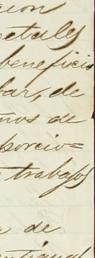 cion
metales
beneficio
bar, de
mos de
porcio=
trabajos
de